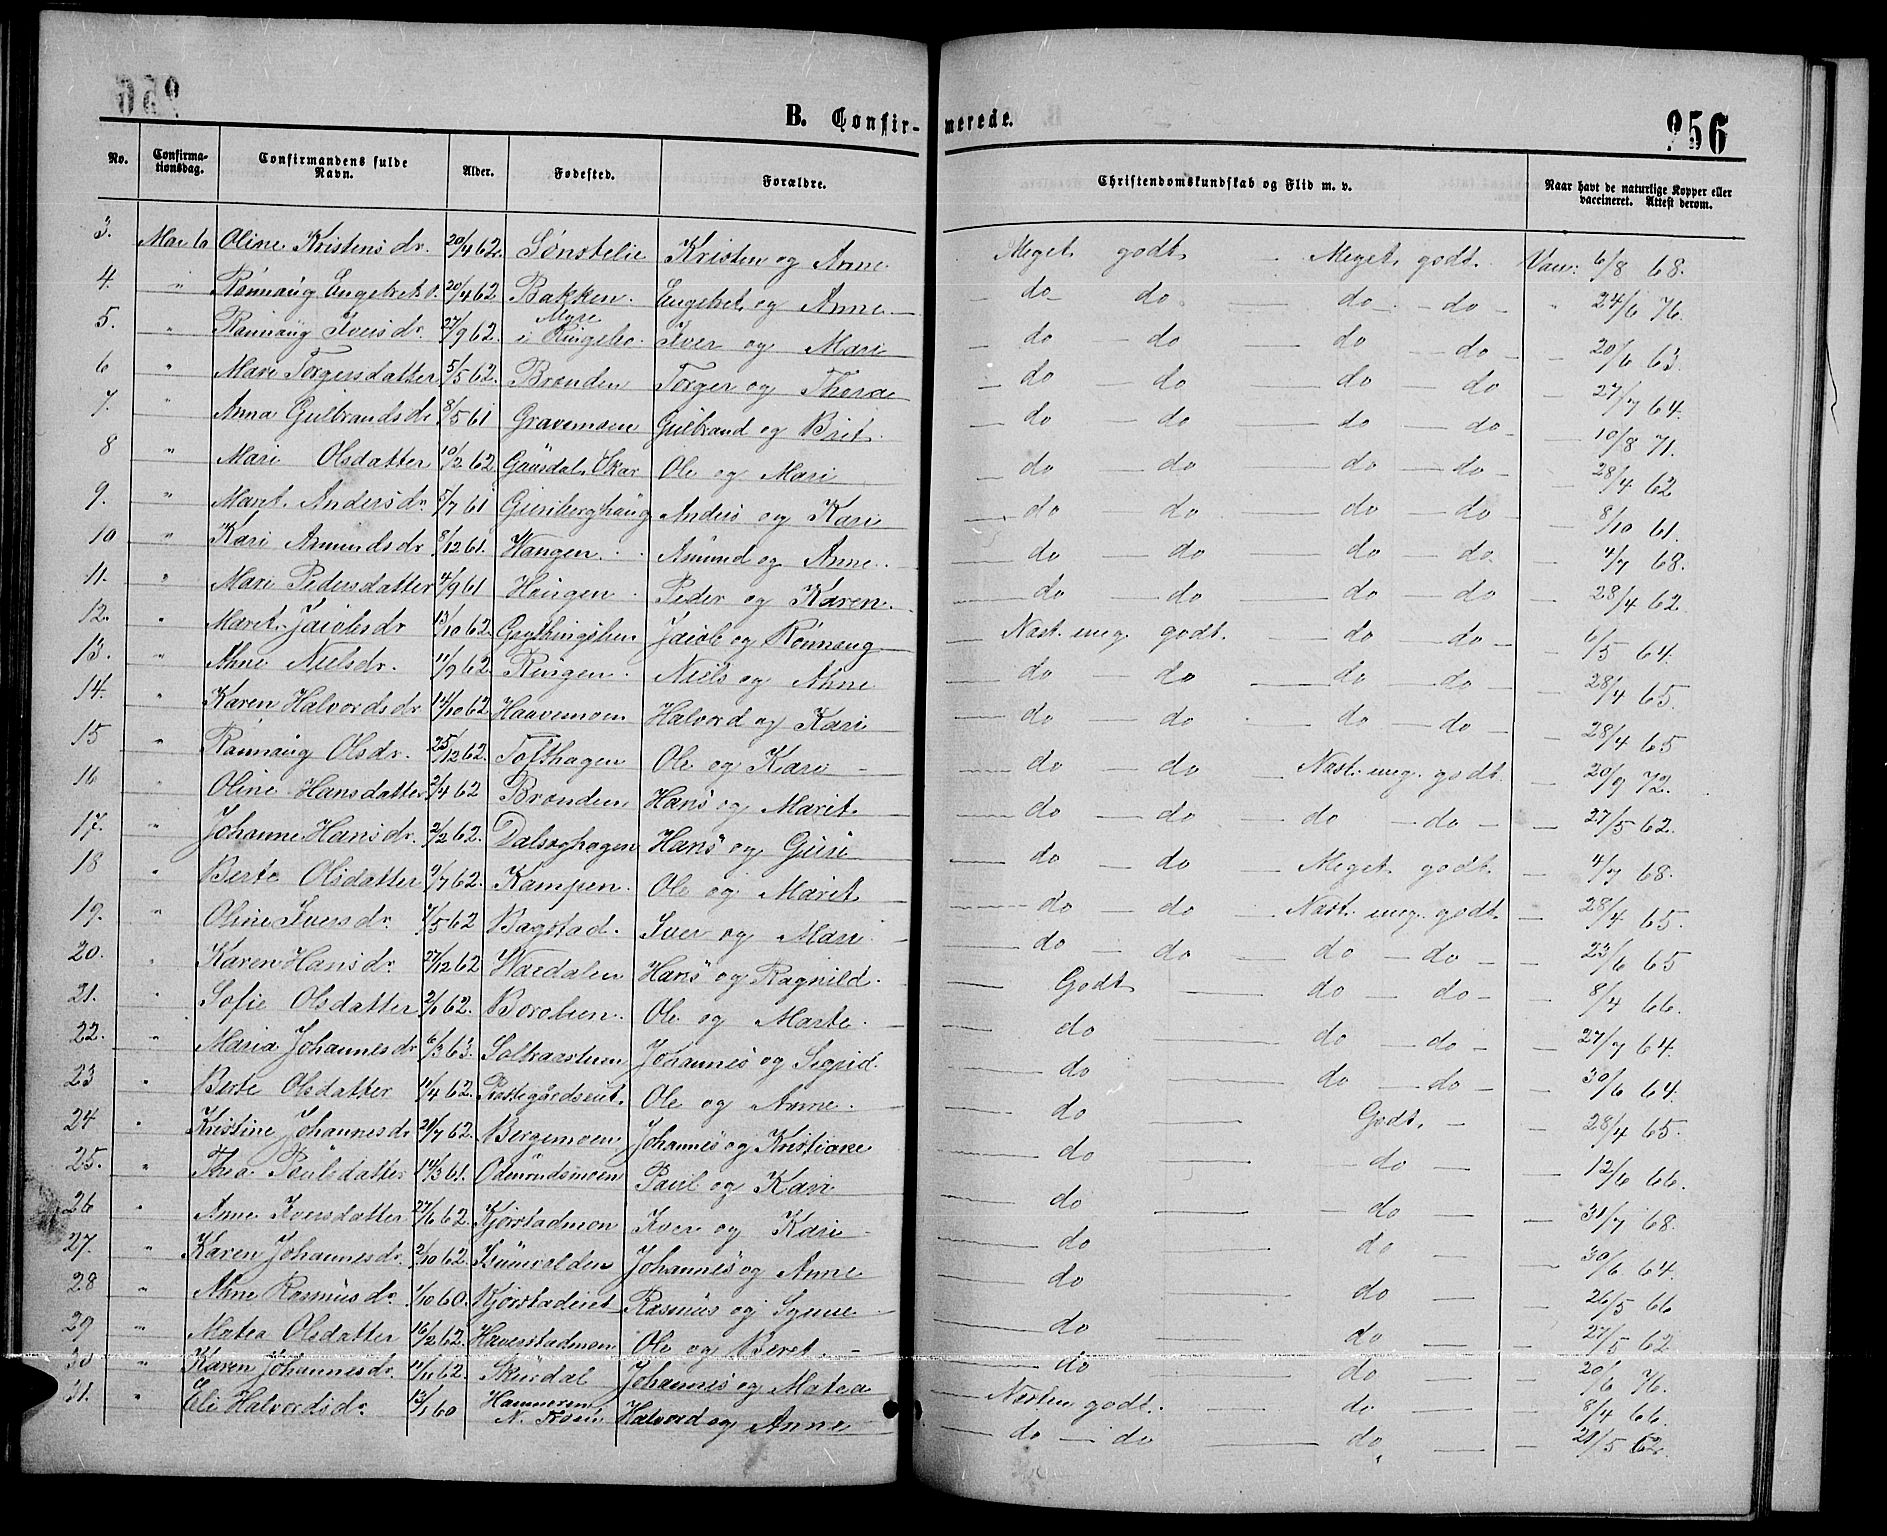 B. Confirmerede.
256
No.
Confirmationsdag.
Confirmandens fulde Navn.
Alder.
Fødested.
Forældre.
Christendomskundskab og Flid m. v.
Naar havt de naturlige Kopper eller vaccineret. Attest derom.
3. Mai 6 Oline Kristensdr. 20/4 62. Sønstelie Kristen og Anne Meget godt Meget godt. Vac: 6/8 68.
4. " Rønnaug Engebretsd. 20/4 62 Bakken. Engebret og Anne do do do do " 24/6 76.
5. " Rønnaug Iversdr. 27/9 62. Myre i Ringebo. Iver og Mari do do do do 20/6 63.
6 " Mari Torgersdatter 5/5 62. Brænden Torger og Thora do do do do 27/7 64.
7. " Anna Gulbrandsdr 8/5 61 Gravemoen Gulbrand og Brit. do do do do 10/8 71.
8 " Mari Olsdatter 10/2 62 Gausdal, Skar Ole og Mari do do do do 28/4 62
9. " Marit Andersdr. 5/7 61 Gunberghaug Anders og Kari do do do do 8/10 61.
10 " Kari Amundsdr. 8/12 61. Wangen Amund og Anne. do do do do 4/7 68.
11. " Mari Pedersdatter 4/9 61 Haugen Peder og Karen. do do do do 28/4 62
12. " Marit Jacobsdr 13/10 62. Jacob og Rønnaug Næst. meg. godt. do do 6/5 64.
13. " Ahne Nielsdr. 11/9 62. Ringen. Niels og Ahne do do do do 28/4 65.
14. " Karen Halvordsdr 14/10 62 Haavemoen Halvord og Kari do do do do 28/4 65
15 " Rønnaug Olsdr. 25/12 62. Tofthagen Ole og Kari do do Næst. meg. godt 20/9 72.
16 " Oline Hansdatter 2/4 62 Brænden Hans og Marit do do do do 27/5 62.
17. " Johanne Hansdr. 2/2 62. Dalseghagen Hans og Guri do do Meget godt. 4/7 68.
18 " Berte Olsdatter 9/7 62. Kampen. Ole og Marit do do Næst. meg. godt. 28/4 65.
19. " Oline Iversdr. 7/5 62 Bagstad. Iver og Mari. do do do do 23/6 65
20. " Karen Hansdr. 27/12 62 Waedalen Hans og Ragnild. Godt do do 8/4 66.
21. " Sofie Olsdatter 2/6 62. Ole og Marte. do do do 27/7 64.
22. " Maria Johannesdr 6/3 63. Johannes og Sigrid. do do do 30/6 64.
23 " Berte Olsdatter 11/4 62. Ole og Anne. do Godt. 28/4 65.
24 " Kristine Johannesdr 20/7 62. Bergemoen Johannes og Kristiane do do 12/6 66.
25. " Thea Paulsdatter 14/3 61. Odmundsmoen Paul og Kari do do 31/7 68.
26 " Anne Iversdatter 27/6 62. Kjørstadmoen Iver og Kari do do 30/6 64.
27. " Karen Johannesdr. 2/10 62. Johannes og Anne do do 26/5 66
28 " Ahne Rasmusdr. 1/10 60. Kjørstadeiet Rasmus og Synne do do 27/5 62
29 " Matea Olsdatter 16/2 62. Haverstadmoen Ole og Beret. do do 20/6 76.
30 " Karen Johannesdr. 11/11 62. Skurdal Johannes og Matea Næsten godt. do 8/4 66.
31. " Eli Halvordsdr. 13/1 60 Hammeren N. Fron Halvord og Anne do do do 21/5 62.